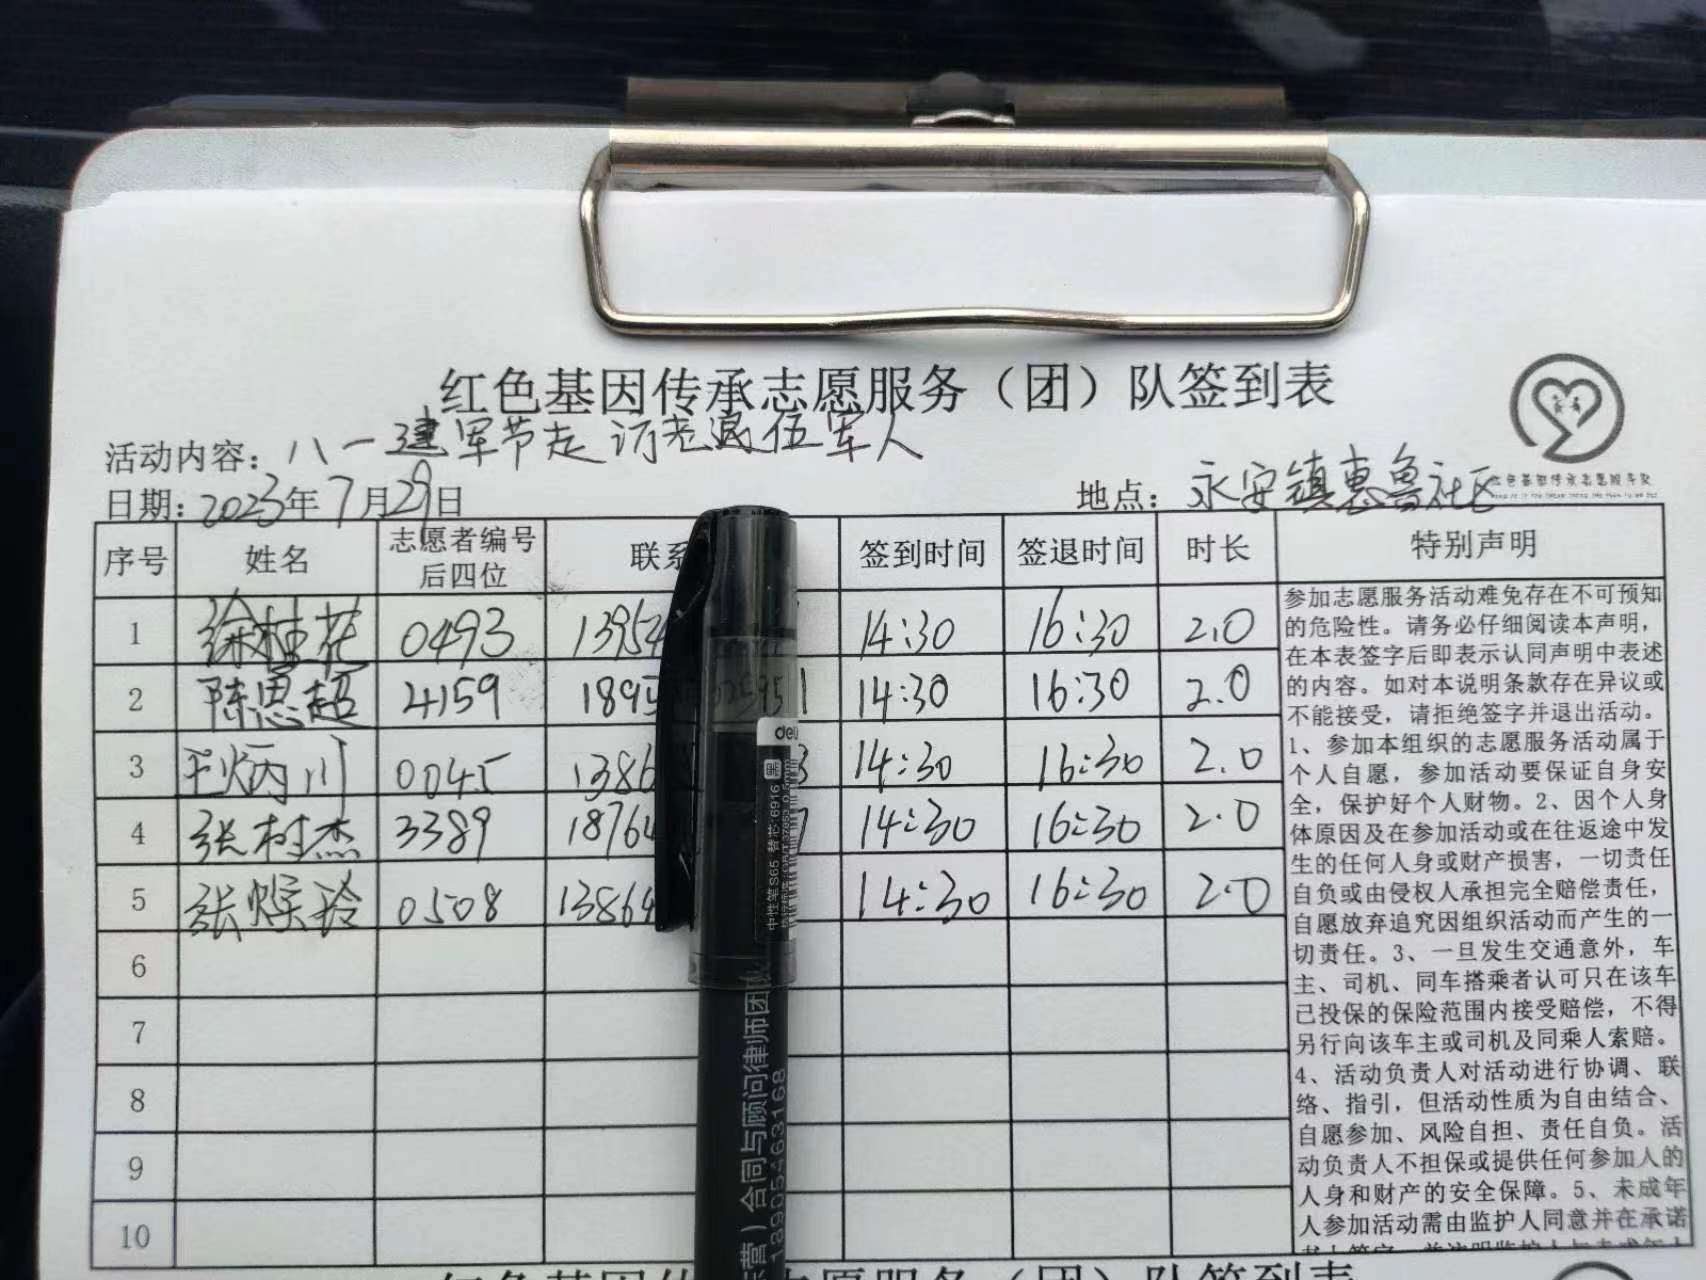 红色基因传承志愿服务（团）队签到表
活动内容：八一建军节走访老退伍军人
日期：2023年7月29日
地点：永安镇惠鲁社区
序号 姓名 志愿者编号后四位 联系 签到时间 签退时间 时长 特别声明
1 徐桂花 0493 13954 14:30 16:30 2.0
2 陈思超 4159 1895 14:30 16:30 2.0
3 王炳川 0045 1386 3 14:30 16:30 2.0
4 张树杰 3389 18764 7 14:30 16:30 2.0
5 张 玲 0508 13864 14:30 16:30 2.0
6
7
8
9
10
参加志愿服务活动难免存在不可预知
的危险性。请务必仔细阅读本声明，
在本表签字后即表示认同声明中表述
的内容。如对本说明条款存在异议或
不能接受，请拒绝签字并退出活动。
1、参加本组织的志愿服务活动属于
个人自愿，参加活动要保证自身安
全，保护好个人财物。2、因个人身
体原因及在参加活动或在往返途中发
生的任何人身或财产损害，一切责任
自负或由侵权人承担完全赔偿责任，
自愿放弃追究因组织活动而产生的一
切责任。3、一旦发生交通意外，车
主、司机、同车搭乘者认可只在该车
已投保的保险范围内接受赔偿，不得
另行向该车主或司机及同乘人索赔。
4、活动负责人对活动进行协调、联
络、指引，但活动性质为自由结合、
自愿参加、风险自担、责任自负。活
动负责人不担保或提供任何参加人的
人身和财产的安全保障。5、未成年
人参加活动需由监护人同意并在承诺
deli
中性笔S65 替芯:6916
营）合同与顾问律师团队
18905463168